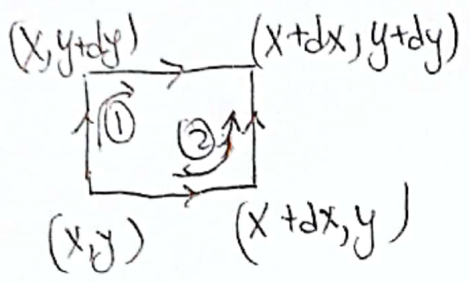 (x, y+dy) (x+dx, y+dy)
① ②
(x,y) (x+dx, y)